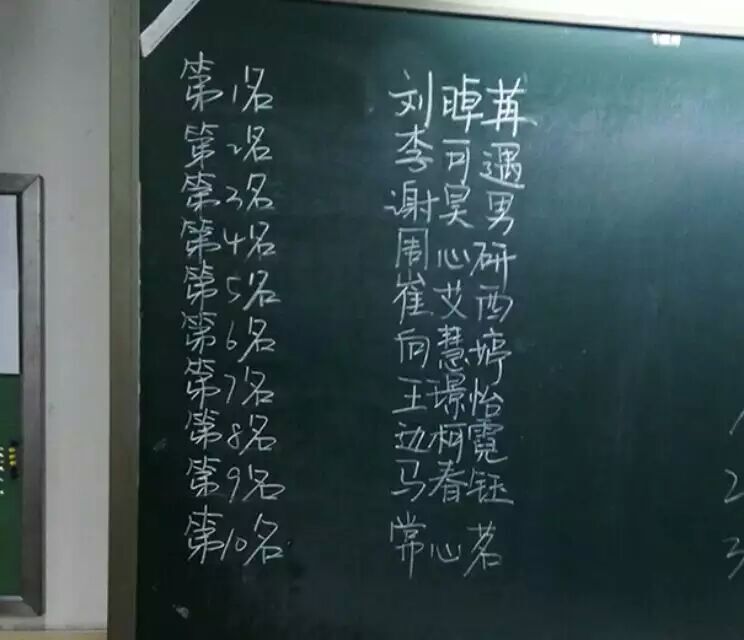 第1名 刘晫苒
第2名 李可遇
第3名 谢昊男
第4名 周心研
第5名 崔艾西
第6名 向慧婷
第7名 王璟怡
第8名 边柯霓
第9名 马春钰
第10名 常心茗
2
3